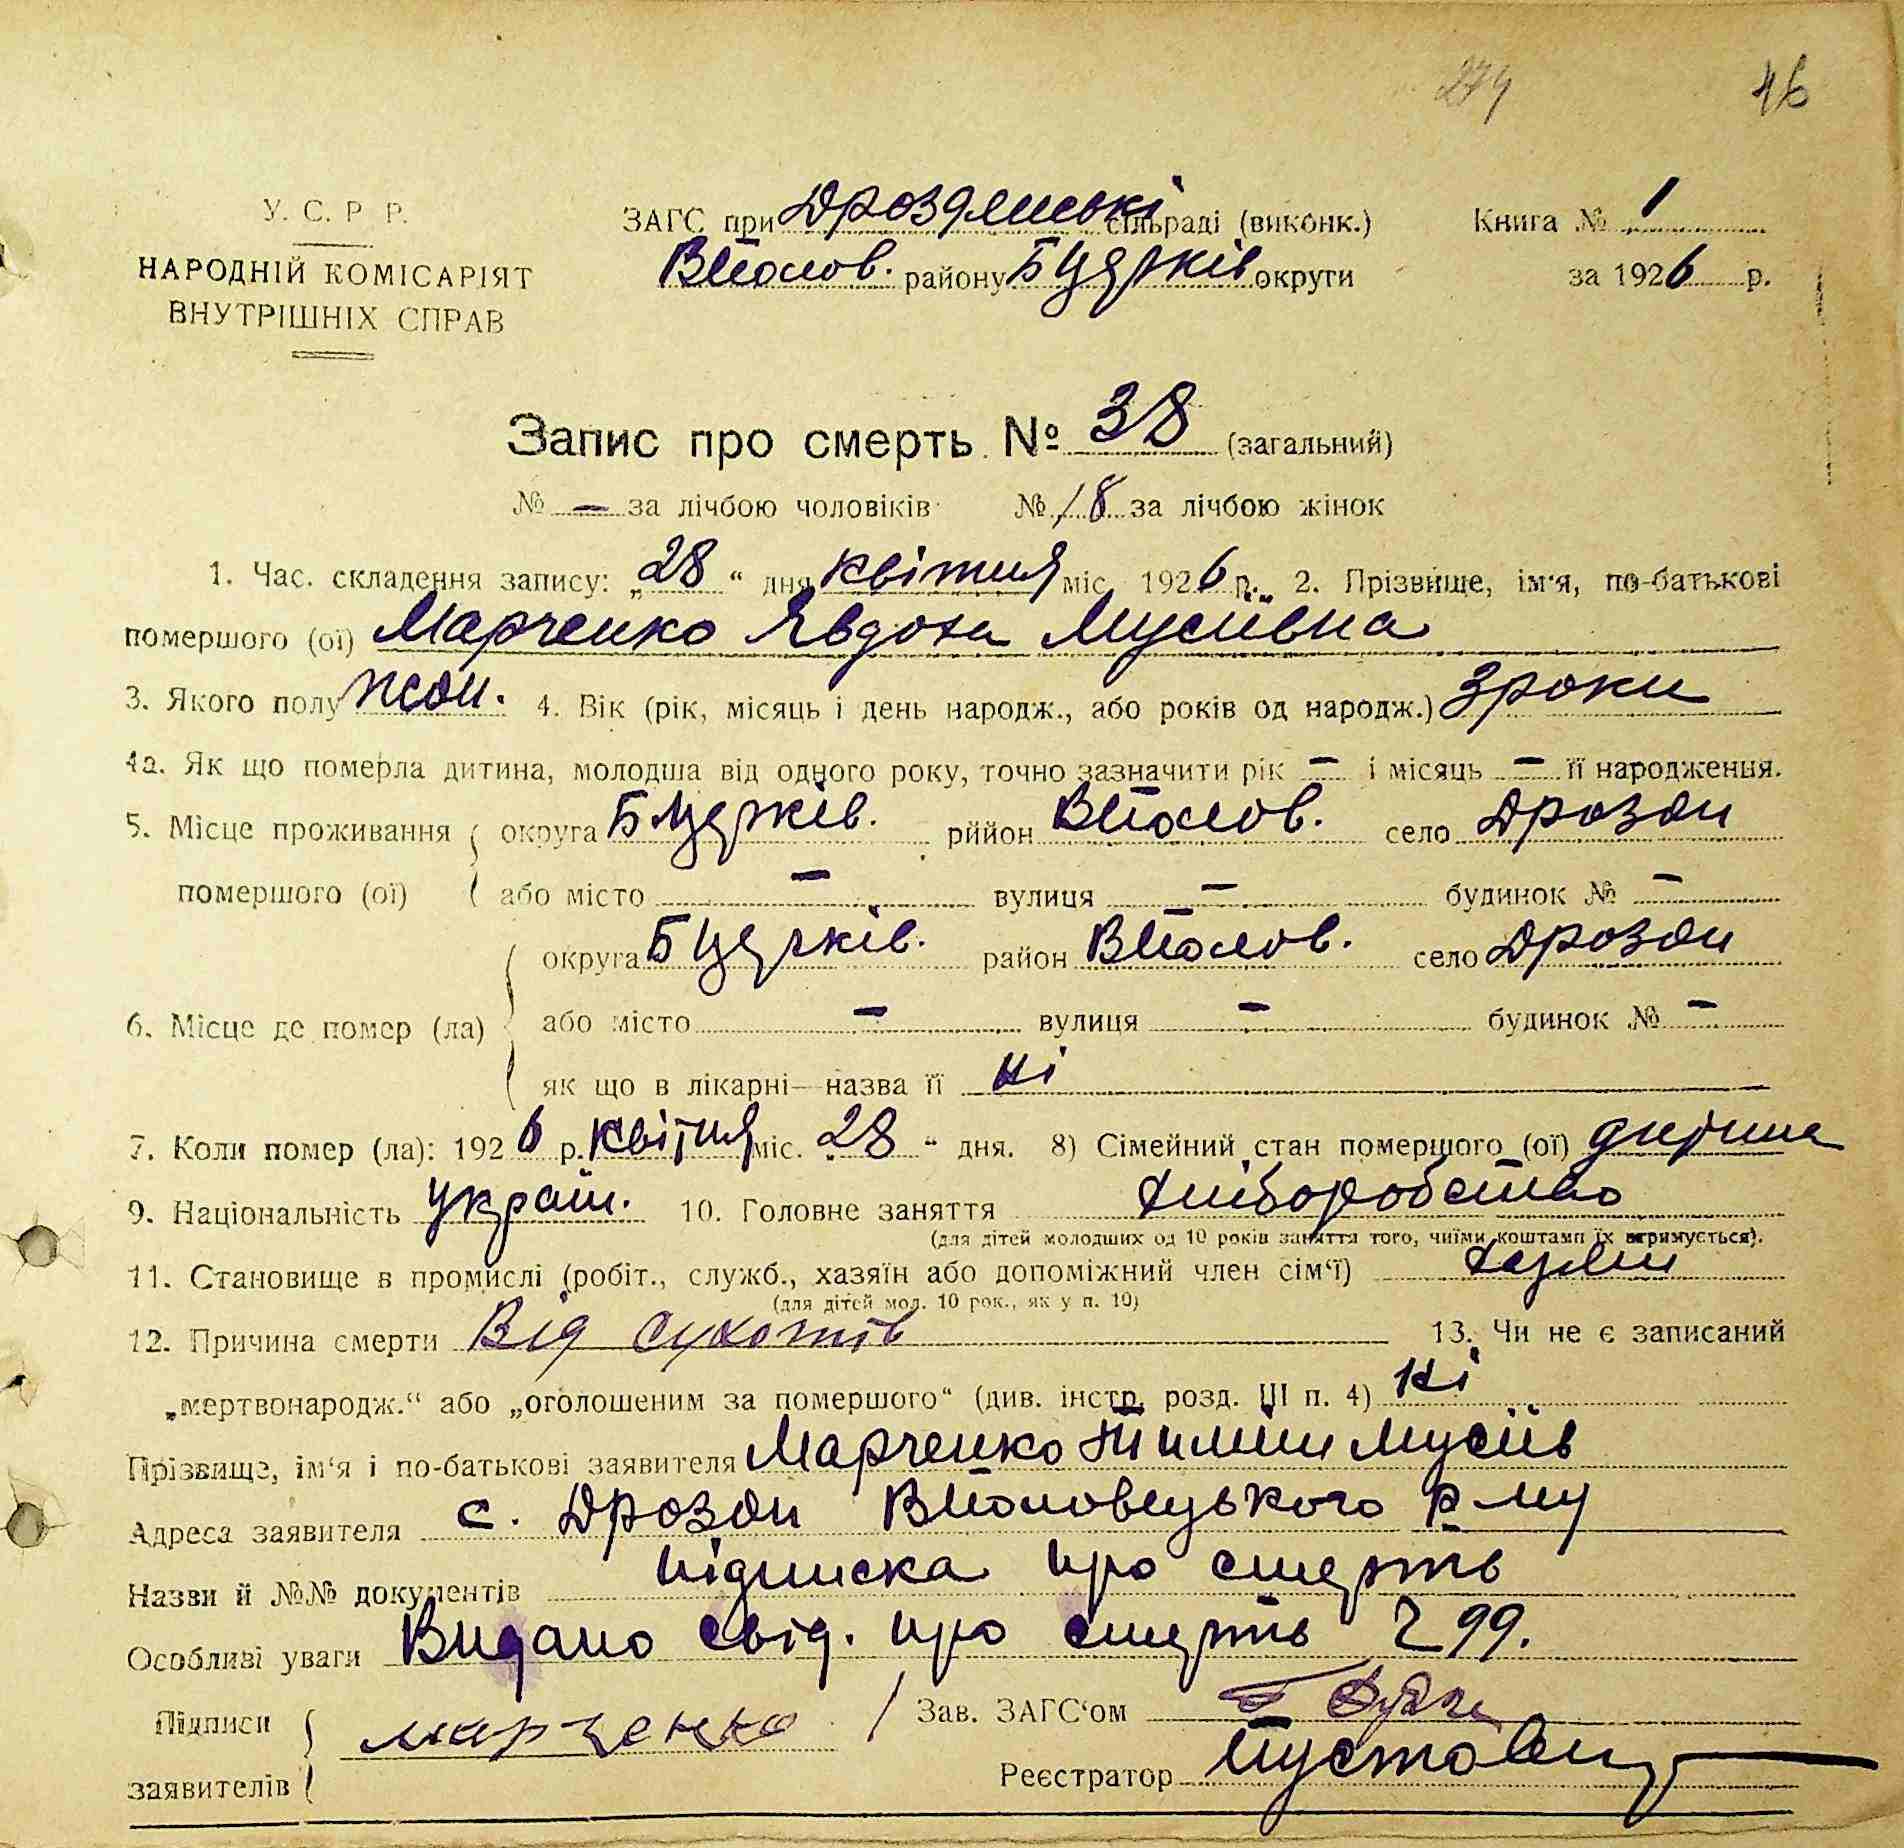 274 46
У. С. Р Р.
НАРОДНІЙ КОМІСАРІЯТ
ВНУТРІШНІХ СПРАВ
ЗАГС при Дроздянські сільраді (виконк.)
Книга № 1
Вполов. району Б Церків округи
за 1926 р.
Запис про смерть № 38 (загальний)
№ — за лічбою чоловіків № 18 за лічбою жінок
1. Час. складення запису: „28“ дня квітня міс. 1926 р. 2. Прізвище, ім'я, по-батькові
помершого (ої) Марченко Явдоха Мусіївна
3. Якого полу жон. 4. Вік (рік, місяць і день народж., або років од народж.) 3 роки
4а. Як що померла дитина, молодша від одного року, точно зазначити рік — і місяць — її народження.
5. Місце проживання округа Б Церків. рййон Вполов. село Дрозди
помершого (ої) або місто — вулиця — будинок № —
округа Б Церків. район Вполов. село Дрозди
6. Місце де помер (ла) або місто — вулиця — будинок № —
як що в лікарні—назва її ні
7. Коли помер (ла): 1926 р. квітня міс. 28 “ дня. 8) Сімейний стан помершого (ої) дитина
9. Національність украін. 10. Головне заняття хліборобство
(для дітей молодших од 10 років заняття того, чиїми коштами їх отримується).
11. Становище в промислі (робіт., служб., хазяїн або допоміжний член сім'ї) хазяін
(для дітей мол. 10 рок., як у п. 10)
12. Причина смерти Від сухотів 13. Чи не є записаний
„мертвонародж.“ або „оголошеним за помершого“ (див. інстр. розд. III п. 4) ні
Прізвище, ім'я і по-батькові заявителя Марченко Мусіів
Адреса заявителя с. Дрозди Вполовецького р-ну
Назви й №№ документів підписка про смерть
Особливі уваги Видано свід. про смерть 99.
Підписи
заявителів
марченко
Зав. ЗАГС'ом
Реєстратор